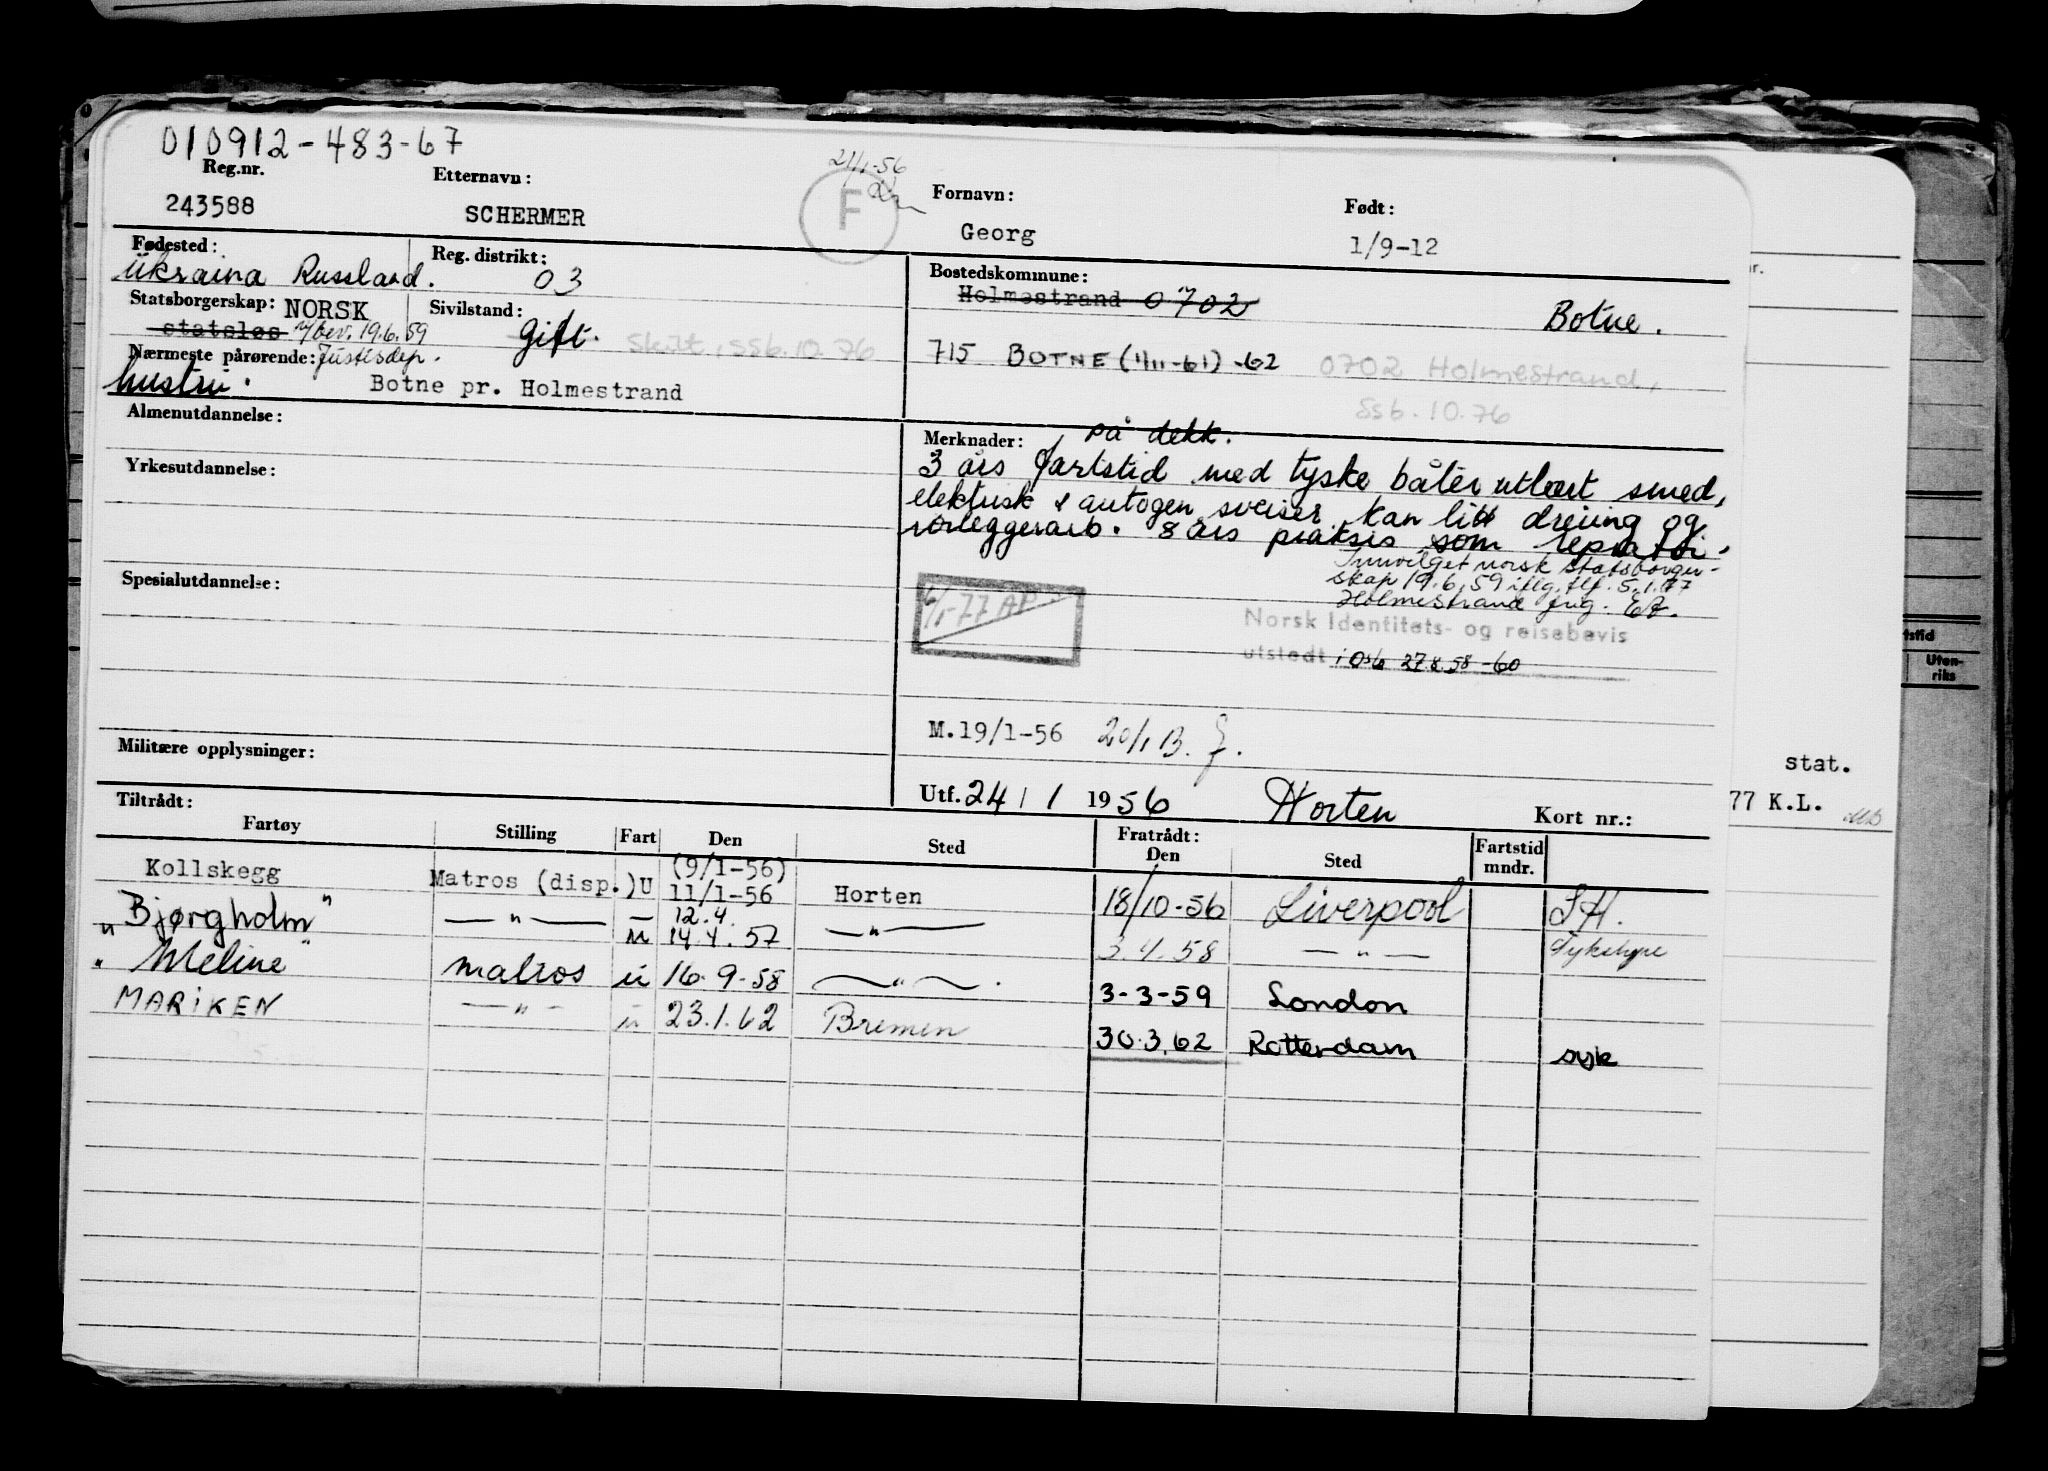 010912-483-67
Reg.nr. Etternavn: 21/1-56 Fornavn: Født:
243588 SCHERMER F Georg 1/9-12
Fødested: Reg. distrikt: Bostedskommune:
Ukraina Russland. 03 Holmestrand 0702 Botne.
Statsborgerskap: NORSK Sivilstand:
statsløs 19.6.59 Gift. Skilt, ssb. 10.76 715 BOTNE (1/11-61) -62 0702 Holmestrand,
Nærmeste pårørende: Justisdep. ssb. 10.76
hustru. Botne pr. Holmestrand
Almenutdannelse: Merknader: på dekk.
3 års fartstid med tyske båter utlært smed,
Yrkesutdannelse: elektrisk & autogen sveiser. kan litt dreiing og
rørleggerarb. 8 års praksis som
Innvilget norsk statsborger-
Spesialutdannelse: skap 19.6.59 iflg. tlf. 5.1.77
6/1-77 AP Holmestrand
Norsk Identitets- og reisebevis
utstedt i Oslo 27.8.58 -60
M.19/1-56 20/1 B.
Militære opplysninger:
Utf. 24/1 1956 Horten Kort nr.:
stat.
77 K.L.
stid
Uten-
riks
Tiltrådt: Fratrådt:
Fartøy Stilling Fart Den Sted Den Sted Fartstid mndr.
Kollskegg Matros (disp.) U (9/1-56) 11/1-56 Horten 18/10-56 Liverpool S.H.
"Bjørgholm" — " — — u 12.4. 14.4.57 — " — 3.4.58 — " —
"Meline" matros u 16.9.58 — " — . 3-3-59 London
MARIKEN — " — u 23.1.62 Bremen 30.3.62 Rotterdam syk